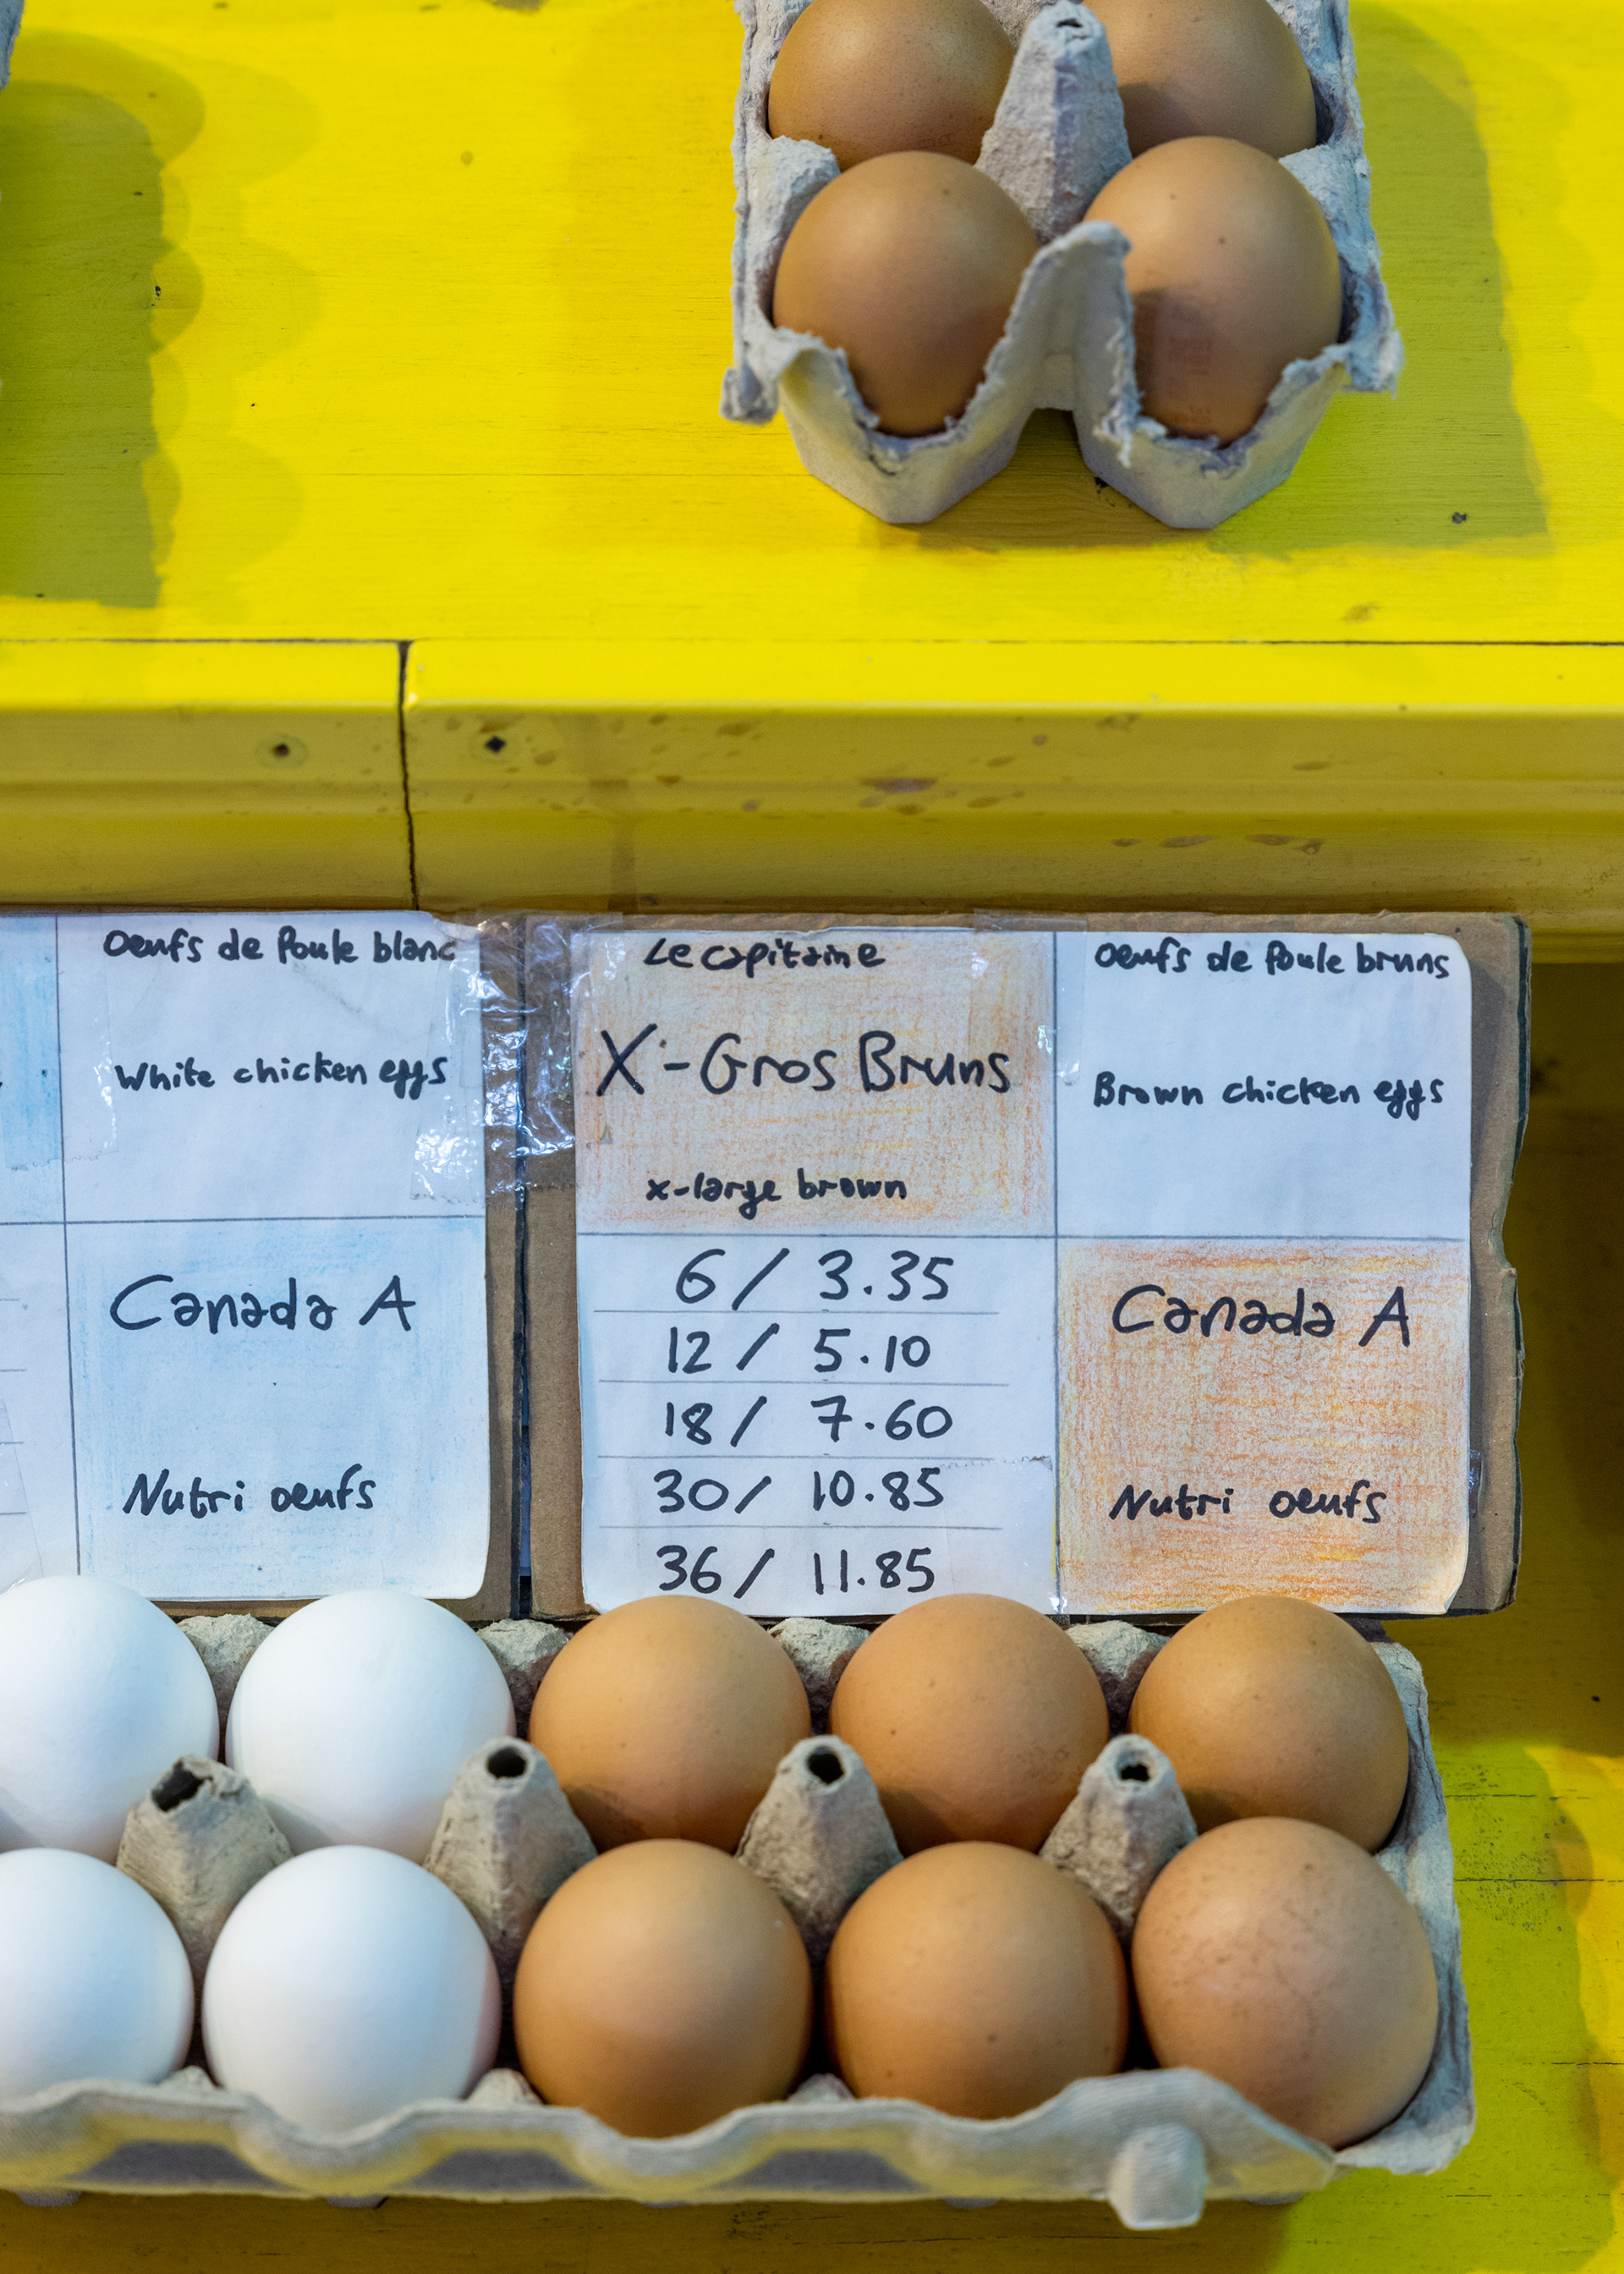 Oeufs de Poule blanc
White chicken eggs
Canada A
Nutri oeufs
Le capitaine
X-Gros Bruns
x-large brown
6 / 3.35
12 / 5.10
18 / 7.60
30 / 10.85
36 / 11.85
Oeufs de Poule bruns
Brown chicken eggs
Canada A
Nutri oeufs